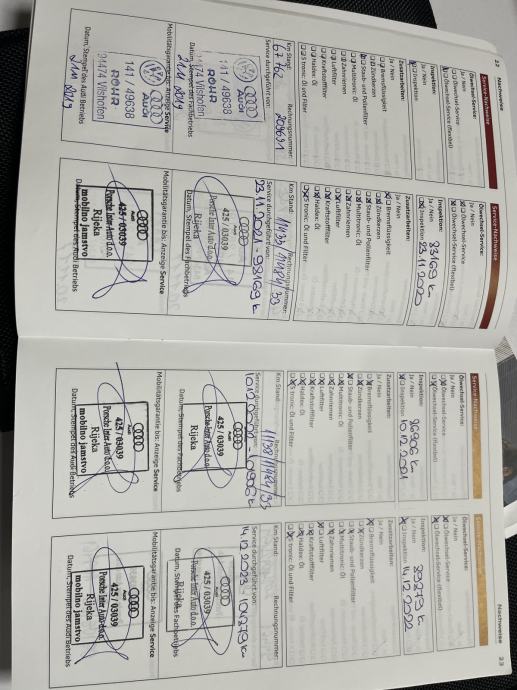 22
Nachweise
Service-Nachweise
Ölwechsel-Service:
Ja / Nein
Ölwechsel-Service
Ölwechsel-Service (flexibel)
Inspektion:
Ja / Nein
Inspektion
Zusatzarbeiten:
Ja / Nein
Bremsflüssigkeit
Zündkerzen
Staub- und Pollenfilter
Multitronic Öl
Zahnriemen
Luftfilter
Kraftstofffilter
Haldex: Öl
S tronic: Öl und Filter
Km Stand:
Rechnungsnummer:
67162
Service durchgeführt von:
Audi
141 / 49638
ROHR
94474 Vilshofen
Datum, Stempel des Fachbetriebs
Mobilitätsgarantie bis: Anzeige Service
Audi
141 / 49638
ROHR
94474 Vilshofen
Datum, Stempel des Audi Betriebs
Service-Nachweise
Ölwechsel-Service:
Ja / Nein
Ölwechsel-Service
Ölwechsel-Service (flexibel)
Inspektion:
83169 km
Ja / Nein
Inspektion
23.11.2020
Zusatzarbeiten:
Ja / Nein
Bremsflüssigkeit
Zündkerzen
Staub- und Pollenfilter
Multitronic: Öl
Zahnriemen
Luftfilter
Kraftstofffilter
Haldex: Öl
S tronic: Öl und Filter
Km Stand:
Rechnungsnummer:
Service durchgeführt von:
Audi
425 / 03039
Porsche Inter Auto d.o.o.
Rijeka
Datum, Stempel des Fachbetriebs
Mobilitätsgarantie bis: Anzeige Service
Audi
425 / 03039
Porsche Inter Auto d.o.o.
Rijeka
mobilno jamstvo
Datum, Stempel des Audi Betriebs
Service-Nachweise
Ölwechsel-Service:
Ja / Nein
Ölwechsel-Service
Ölwechsel-Service (flexibel)
Inspektion:
Ja / Nein
Inspektion
10.12.2021
Zusatzarbeiten:
Ja / Nein
Bremsflüssigkeit
Zündkerzen
Staub- und Pollenfilter
Multitronic: Öl
Zahnriemen
Luftfilter
Kraftstofffilter
Haldex: Öl
S tronic: Öl und Filter
Km Stand:
Service durchgeführt von:
Audi
425 / 03039
Porsche Inter Auto d.o.o.
Rijeka
Datum, Stempel des Fachbetriebs
Mobilitätsgarantie bis: Anzeige Service
Audi
425 / 03039
Porsche Inter Auto d.o.o.
Rijeka
mobilno jamstvo
Datum, Stempel des Audi Betriebs
Nachweise
23
Service-Nachweise
Ölwechsel-Service:
Ja / Nein
Ölwechsel-Service
Ölwechsel-Service (flexibel)
Inspektion:
89279 km
Ja / Nein
Inspektion
14.12.2022
Zusatzarbeiten:
Ja / Nein
Bremsflüssigkeit
Zündkerzen
Staub- und Pollenfilter
Multitronic: Öl
Zahnriemen
Luftfilter
Kraftstofffilter
Haldex: Öl
S tronic: Öl und Filter
Km Stand:
Rechnungsnummer:
Service durchgeführt von:
Audi
425 / 03039
Porsche Inter Auto d.o.o.
Rijeka
Datum, Stempel des Fachbetriebs
Mobilitätsgarantie bis: Anzeige Service
Audi
425 / 03039
Porsche Inter Auto d.o.o.
Rijeka
mobilno jamstvo
Datum, Stempel des Audi Betriebs